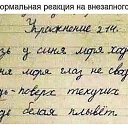 ормальная реакция на внезапного
Упражнение 214.
зь у синя моря ход
ня моря глаз не сво
поверх текучих
где белая плывёт.